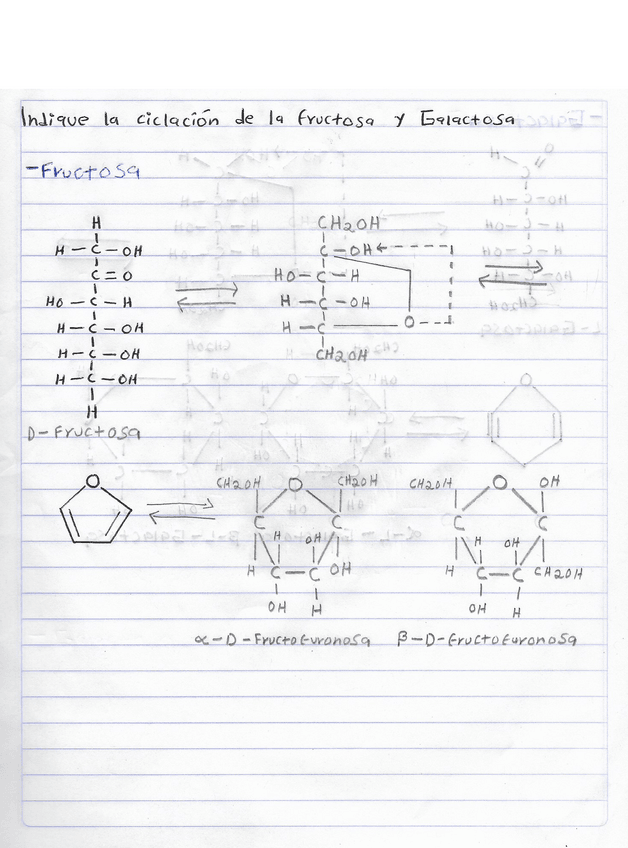 Indique la ciclación de la fructosa y Galactosa
-Fructosa
H
H-C-OH
C=O
HO-C-H
H-C-OH
H-C-OH
H-C-OH
H
D-Fructosa
CH2OH
C-OH
HO-C-H
H-C-OH
H-C O
CH2OH
O
CH2OH O CH2OH
C C
H OH
H C-C OH
OH H
α-D-Fructofuronosa
CH2OH O OH
C C
H OH
H C-C CH2OH
OH H
β-D-fructofuronosa